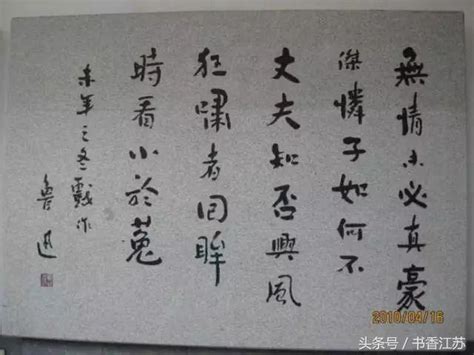 無情未必真豪
傑憐子如何不
丈夫知否興風
狂嘯者回眸
時看小於菟
未年之冬戲作
魯迅
2010/04/16
头条号 / 书香江苏